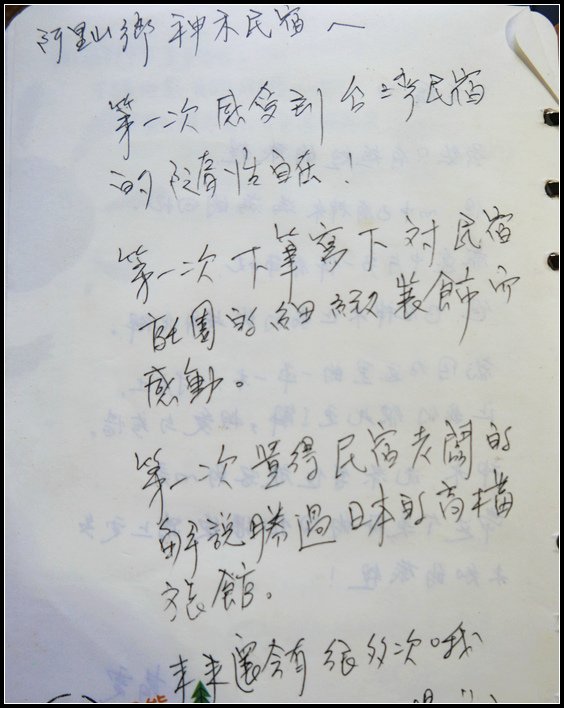 阿里山鄉 神木民宿～
第一次感受到台灣民宿
的隨性自在．
第一次下筆寫下對民宿
的細緻裝飾而
感動。
第一次覺得民宿老闆的
解說勝過日本的高檔
旅館。
未來還會有很多次哦